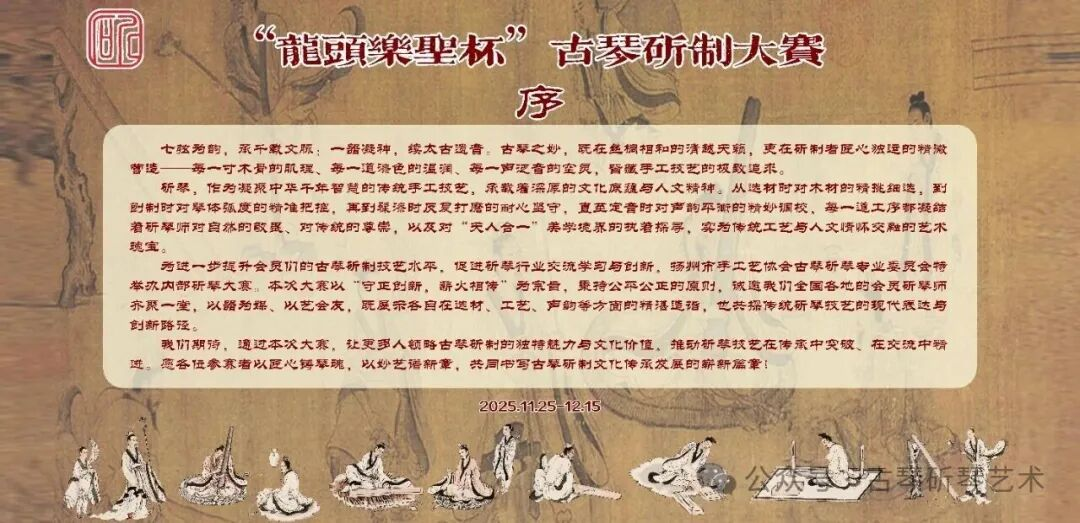 “龍頭樂聖杯”古琴斫制大賽
序
七弦为韵，承千载文脉；一器凝神，续太古遗音。古琴之妙，既在丝桐相和的清越天籁，更在斫制者匠心独运的精微
营造——每一寸木骨的肌理、每一道漆色的温润、每一声泛音的空灵，皆蕴手工技艺的极致追求。
斫琴，作为凝聚中华千年智慧的传统手工技艺，承载着深厚的文化底蕴与人文精神。从选材时对木材的精挑细选，到
刨制时对琴体弧度的精准把控，再到髹漆时反复打磨的耐心坚守，直至定音时对声韵平衡的精妙调校，每一道工序都凝结
着斫琴师对自然的敬畏、对传统的尊崇，以及对“天人合一”美学境界的执着探寻，实为传统工艺与人文情怀交融的艺术
瑰宝。
为进一步提升会员们的古琴斫制技艺水平，促进斫琴行业交流学习与创新，扬州市手工艺协会古琴斫琴专业委员会特
举办内部斫琴大赛。本次大赛以“守正创新，薪火相传”为宗旨，秉持公平公正的原则，诚邀我们全国各地的会员斫琴师
齐聚一堂，以器为媒、以艺会友，既展示各自在选材、工艺、声韵等方面的精湛造诣，也共探传统斫琴技艺的现代表达与
创新路径。
我们期待，通过本次大赛，让更多人领略古琴斫制的独特魅力与文化价值，推动斫琴技艺在传承中突破、在交流中精
进。愿各位参赛者以匠心铸琴魂，以妙艺谱新章，共同书写古琴斫制文化传承发展的崭新篇章！
2025.11.25-12.15
公众号·古琴斫琴艺术